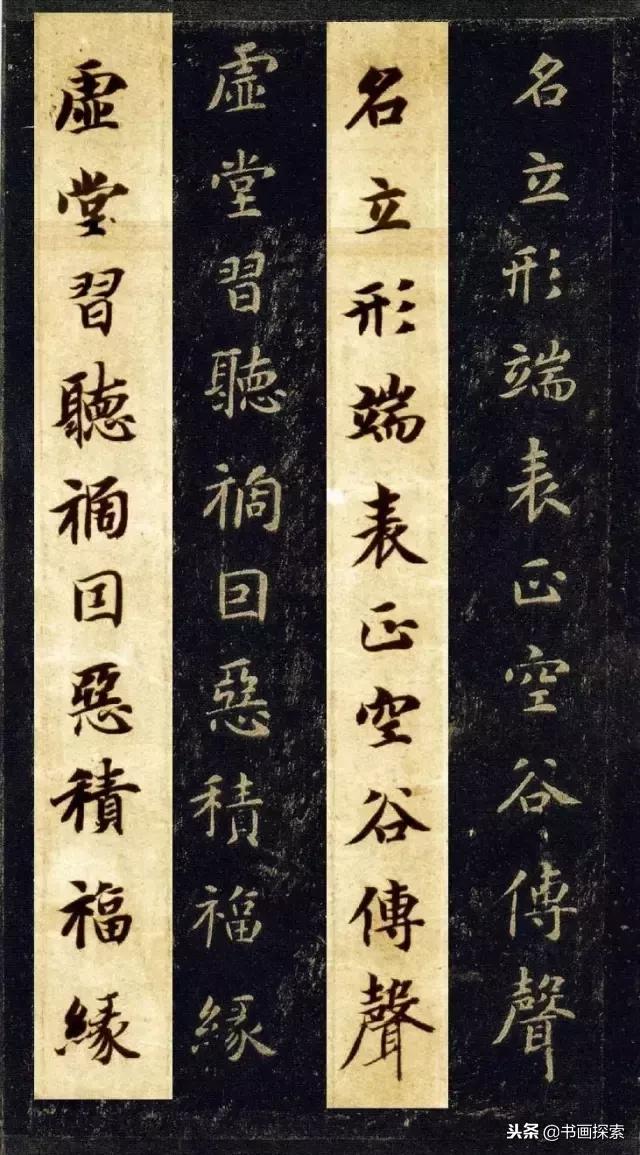 名立形端表正空谷傳聲
名立形端表正空谷傳聲
虛堂習聽禍因惡積福緣
虛堂習聽禍因惡積福緣
头条@书画探索